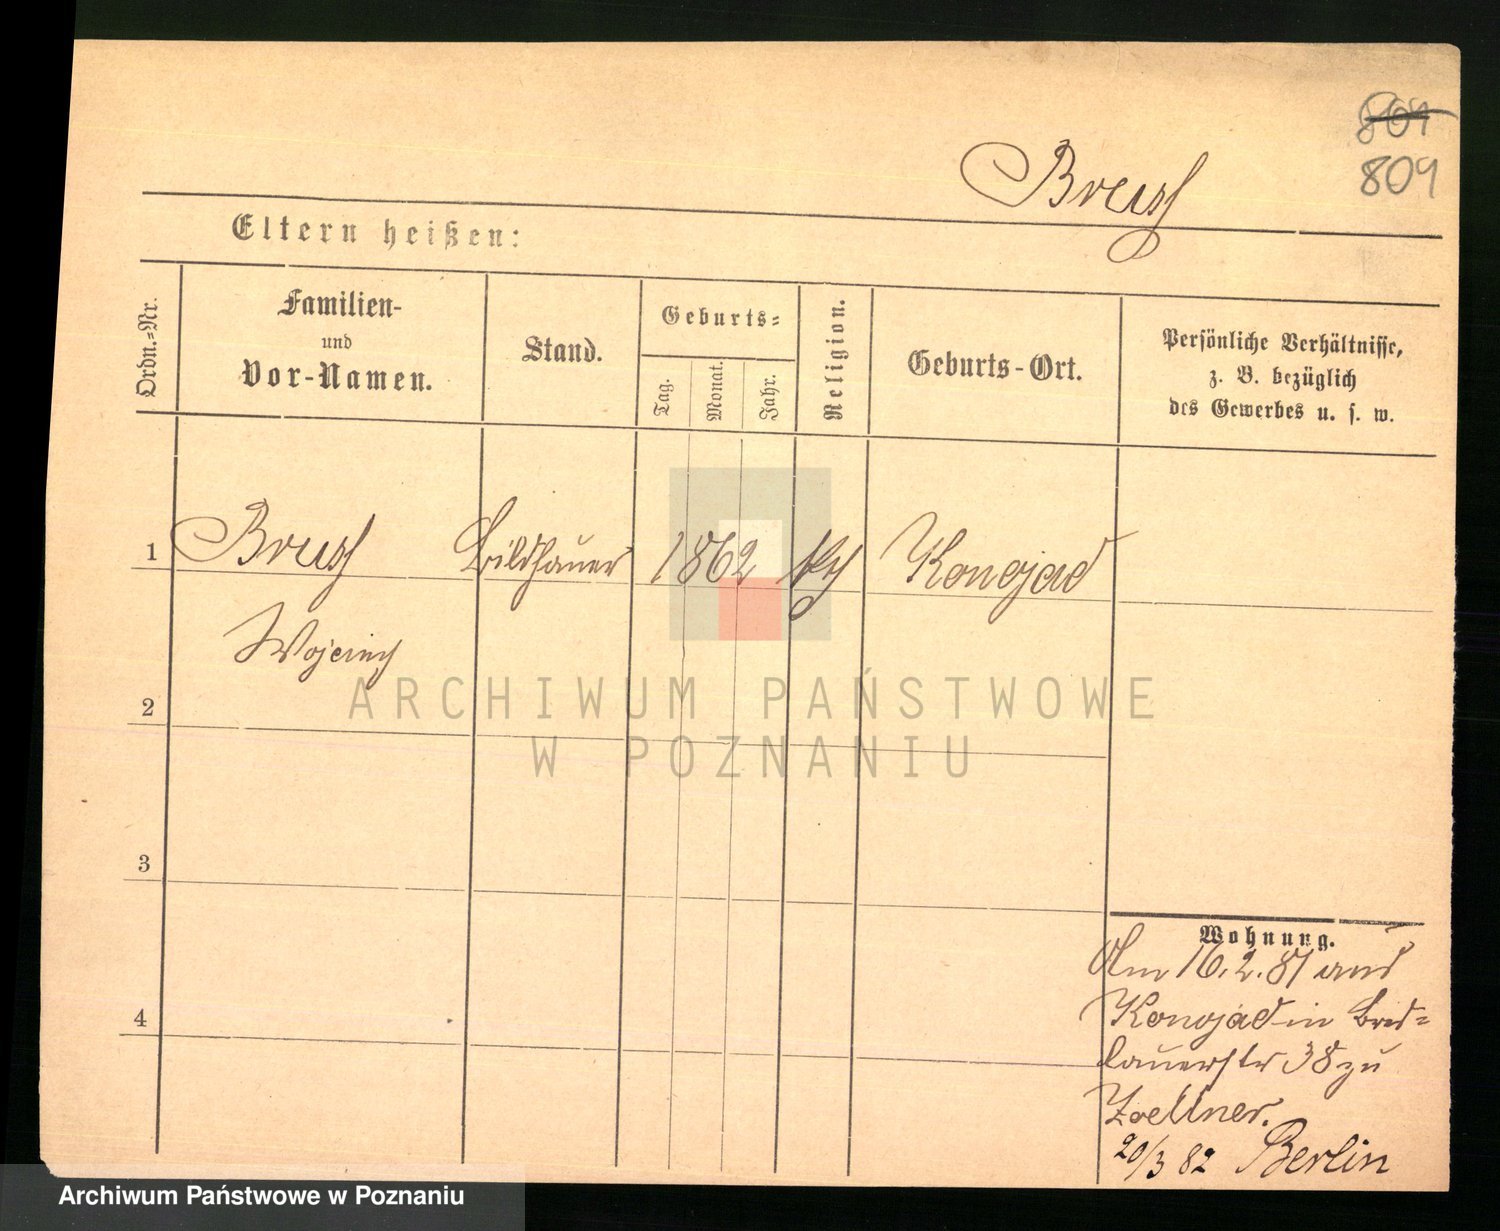 804
809
Brush
Eltern heißen:
Ordn.-Nr.
Familien-
und
Vor-Namen.
Stand.
Geburts-
Tag.
Monat.
Jahr.
Religion.
Geburts-Ort.
Persönliche Verhältnisse,
z. B. bezüglich
des Gewerbes u. s. w.
1 Bildhauer 1862 Konojad
2
3
4
Wohnung.
Am 16.2.81 aus
Konojad in Bres-
lauerstr 38 zu
Zoellner.
20/3 82 Berlin
ARCHIWUM PAŃSTWOWE
W POZNANIU
Archiwum Państwowe w Poznaniu